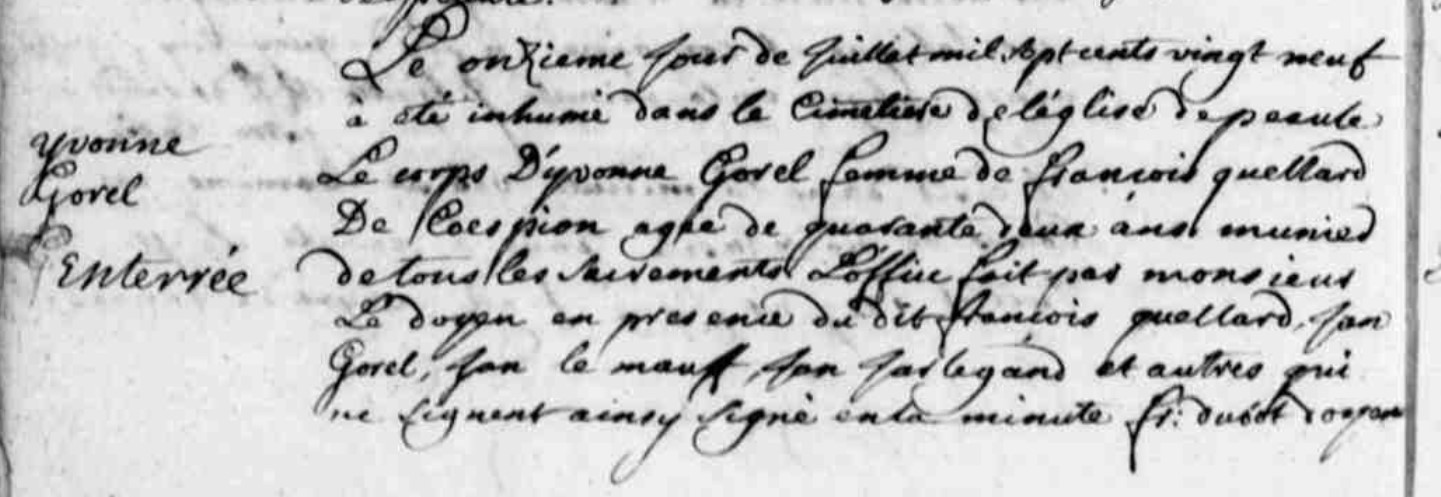 Le onzieme jour de juillet mil sept cents vingt neuf
à été inhumé dans le Cimetiere de léglise de peaule
yvonne
Gorel
Enterrée
Le corps D'yvonne Gorel femme de francois quellard
De agée de quarante deux ans munied
de tous les sacrements L'office fait par monsieur
Le doyen en presence du dit francois quellard, jan
Gorel, jan le mauff, jan et autres qui
ne signent ainsy signé en la minute fr: dubot doyen